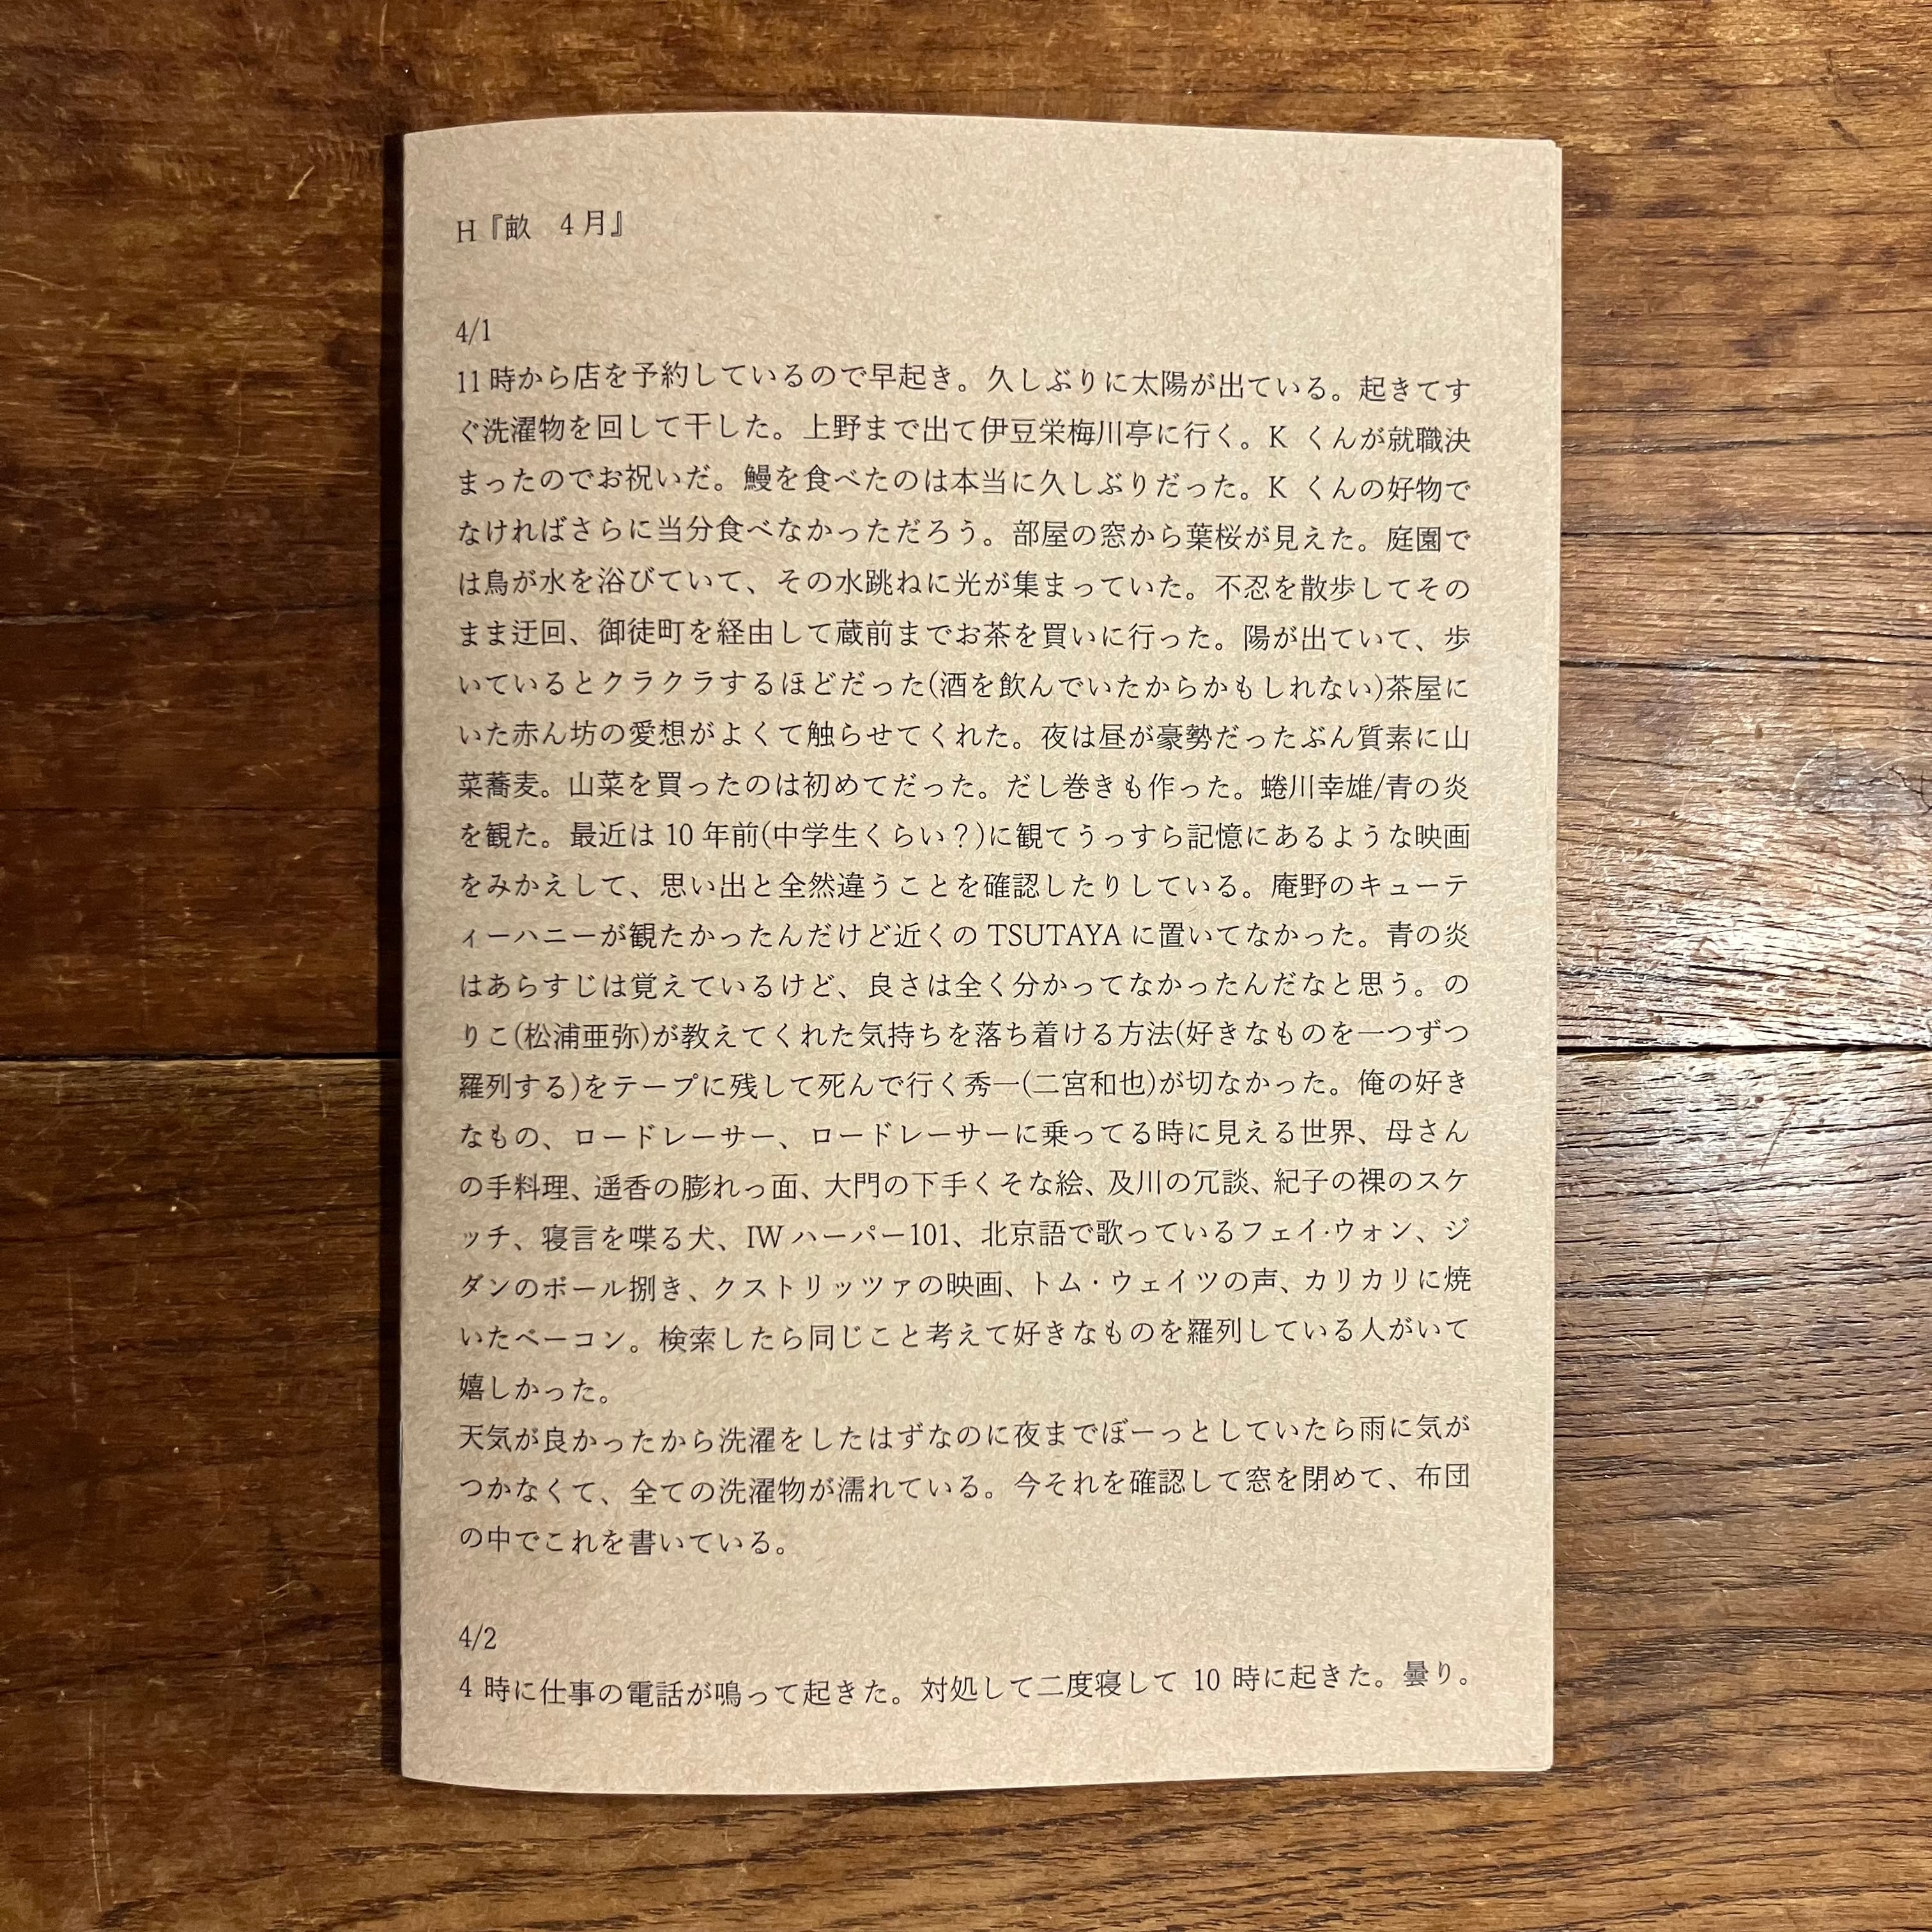 H『畝　4月』
4/1
11時から店を予約しているので早起き。久しぶりに太陽が出ている。起きてす
ぐ洗濯物を回して干した。上野まで出て伊豆栄梅川亭に行く。K くんが就職決
まったのでお祝いだ。鰻を食べたのは本当に久しぶりだった。K くんの好物で
なければさらに当分食べなかっただろう。部屋の窓から葉桜が見えた。庭園で
は鳥が水を浴びていて、その水跳ねに光が集まっていた。不忍を散歩してその
まま迂回、御徒町を経由して蔵前までお茶を買いに行った。陽が出ていて、歩
いているとクラクラするほどだった(酒を飲んでいたからかもしれない)茶屋に
いた赤ん坊の愛想がよくて触らせてくれた。夜は昼が豪勢だったぶん質素に山
菜蕎麦。山菜を買ったのは初めてだった。だし巻きも作った。蜷川幸雄/青の炎
を観た。最近は 10 年前(中学生くらい？)に観てうっすら記憶にあるような映画
をみかえして、思い出と全然違うことを確認したりしている。庵野のキューテ
ィーハニーが観たかったんだけど近くの TSUTAYA に置いてなかった。青の炎
はあらすじは覚えているけど、良さは全く分かってなかったんだなと思う。の
りこ(松浦亜弥)が教えてくれた気持ちを落ち着ける方法(好きなものを一つずつ
羅列する)をテープに残して死んで行く秀一(二宮和也)が切なかった。俺の好き
なもの、ロードレーサー、ロードレーサーに乗ってる時に見える世界、母さん
の手料理、遥香の膨れっ面、大門の下手くそな絵、及川の冗談、紀子の裸のスケ
ッチ、寝言を喋る犬、IW ハーパー101、北京語で歌っているフェイ·ウォン、ジ
ダンのボール捌き、クストリッツァの映画、トム・ウェイツの声、カリカリに焼
いたベーコン。検索したら同じこと考えて好きなものを羅列している人がいて
嬉しかった。
天気が良かったから洗濯をしたはずなのに夜までぼーっとしていたら雨に気が
つかなくて、全ての洗濯物が濡れている。今それを確認して窓を閉めて、布団
の中でこれを書いている。
4/2
4 時に仕事の電話が鳴って起きた。対処して二度寝して 10 時に起きた。曇り。